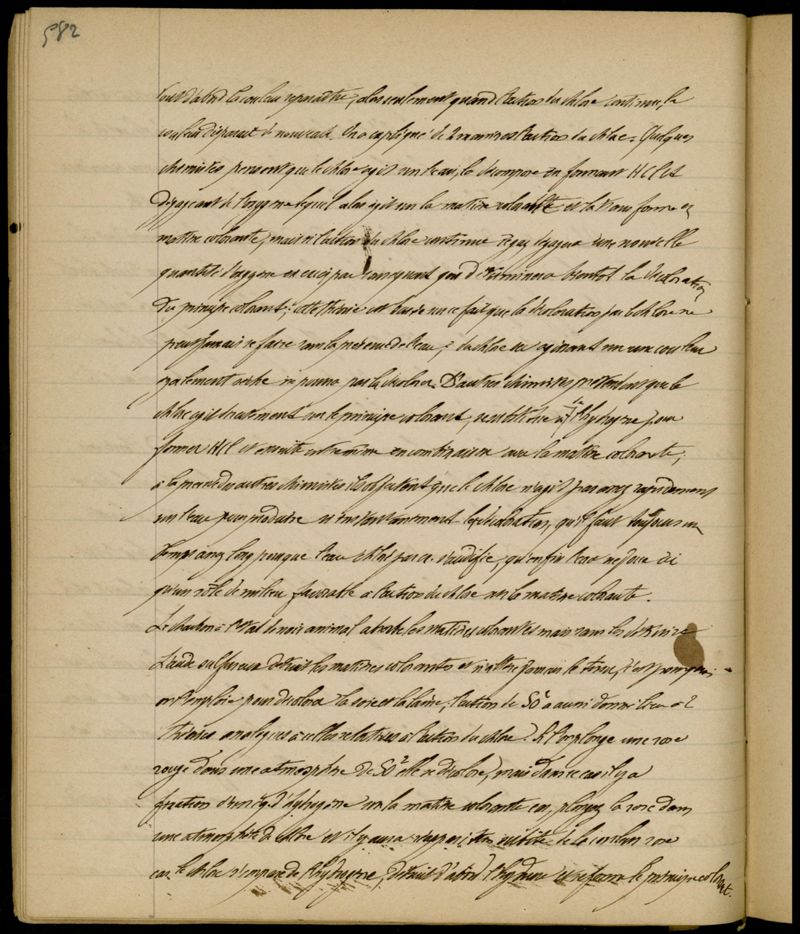 582
d'abord la couleur reparaître, alors seulement quand l'action du chlore continue, la
couleur disparait de nouveau. On a expliqué de 2 manières l'action du chlore. Quelques
chimistes pensent que le chlore agit sur l'eau, la décompose en formant HCl et
dégageant de l'oxygène lequel alors agit sur la matière colorante et la transforme en
matière colorante, mais si l'action du chlore continue une nouvelle
quantité d'oxygène bientôt la décoloration
du principe colorant; cette théorie est basée sur ce fait que la décoloration par le chlore ne
peut jamais se faire sans la présence de l'eau, du chlore sec agissant sur une couleur
également sèche ne pourra pas la décolorer. D'autres chimistes prétendent que le
chlore agit directement sur le principe colorant, l'hydrogène pour
former HCl et ensuite entre même en combinaison avec la matière colorante;
à la pensée des autres chimistes ils objectent que le chlore n'agit pas assez rapidement
sur l'eau pour produire si instantanément la décoloration, qu'il faut toujours un
temps assez long pour que l'eau chlorée s'acidifie, qu'enfin l'eau ne joue ici
qu'un rôle de milieu favorable à l'action du chlore sur la matière colorante.
Le charbon à l'état de noir animal absorbe les matières colorantes mais sans les détruire
L'acide sulfureux détruit les matières colorantes et n'altère jamais le tissu, c'est pourquoi
on l'emploie pour décolorer la soie et la laine, l'action de SO² a aussi donné lieu à 2
théories analogues à celles relatives à l'action du chlore. Si l'on plonge une rose
rouge dans une atmosphère de SO² elle se décolore, mais dans ce cas il y a
fixation d'hydrogène sur la matière colorante car, plongez la rose dans
une atmosphère de chlore et il y aura réapparition subite de la couleur rose
car le chlore s'empare de l'hydrogène, détruit d'abord l'hydrure et reforme le principe colorant.